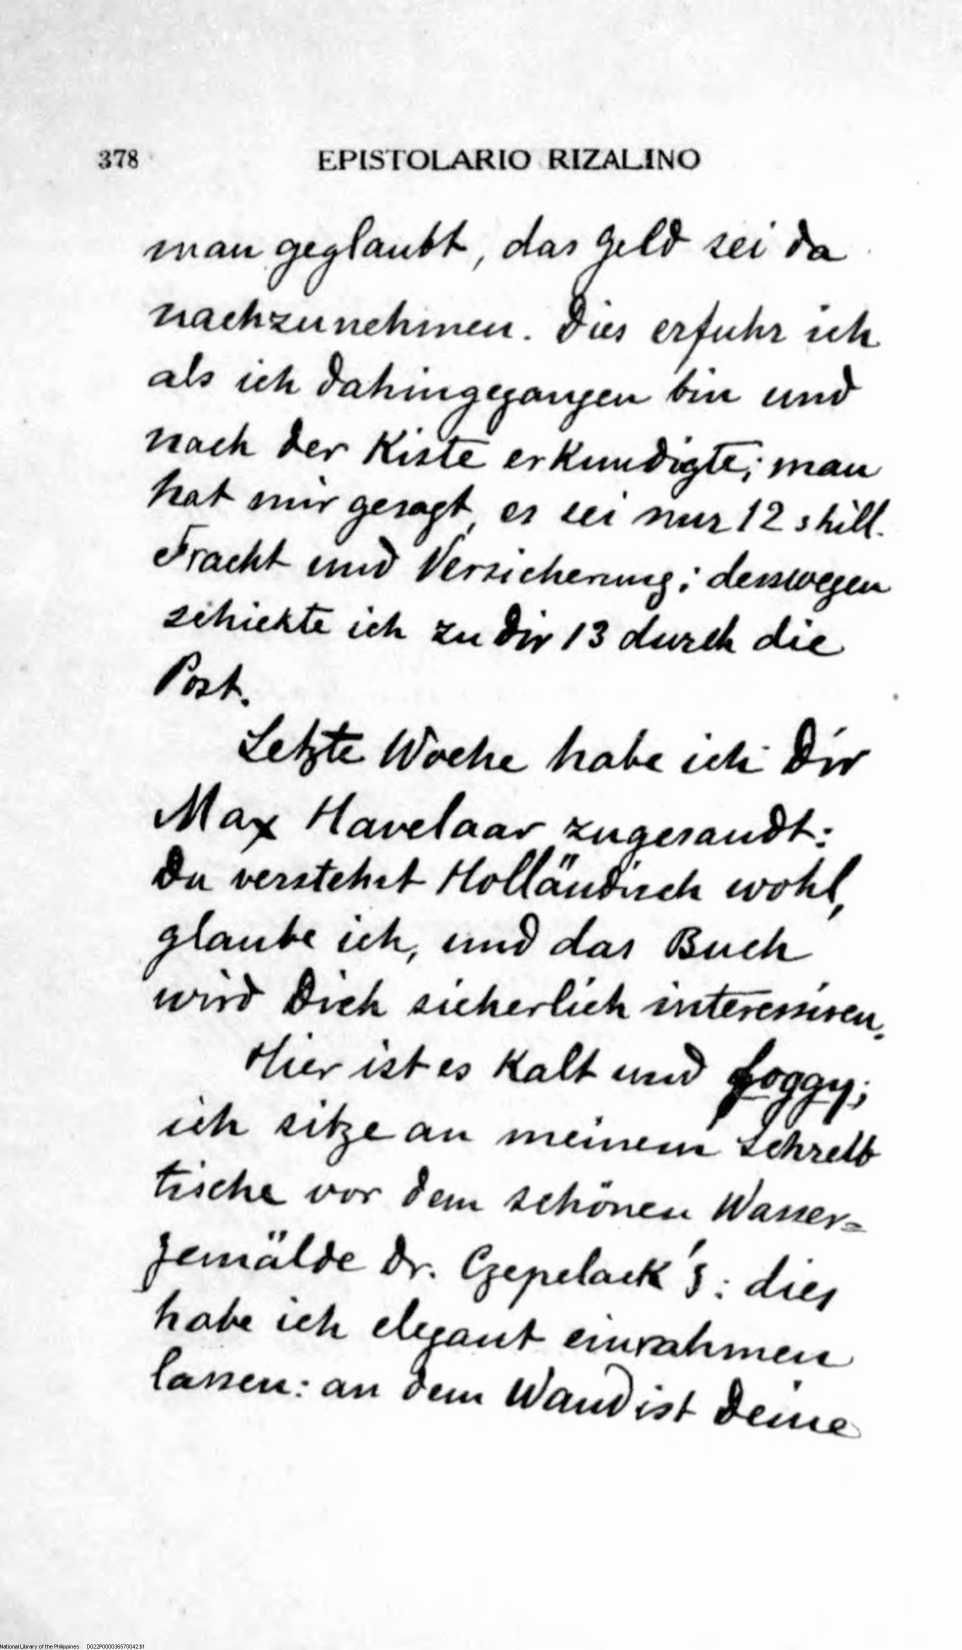 378 EPISTOLARIO RIZALINO
man geglaubt, das Geld sei da
nachzunehmen. Dies erfuhr ich
als ich dahingegangen bin und
nach der Kiste erkundigte; man
hat mir gesagt, es sei nur 12 shill.
Fracht und Versicherung; desswegen
schickte ich zu Dir 13 durch die
Post.
Letzte Woche habe ich Dir
Max Havelaar zugesandt:
Du verstehst Holländisch wohl,
glaube ich, und das Buch
wird Dich sicherlich interessiren.
Hier ist es kalt und foggy;
ich sitze an meinem Schreib
tische vor dem schönen Wasser=
gemälde Dr. Czepelack's: dies
habe ich elegant einrahmen
lassen: an dem Wand ist Deine
National Library of the Philippines